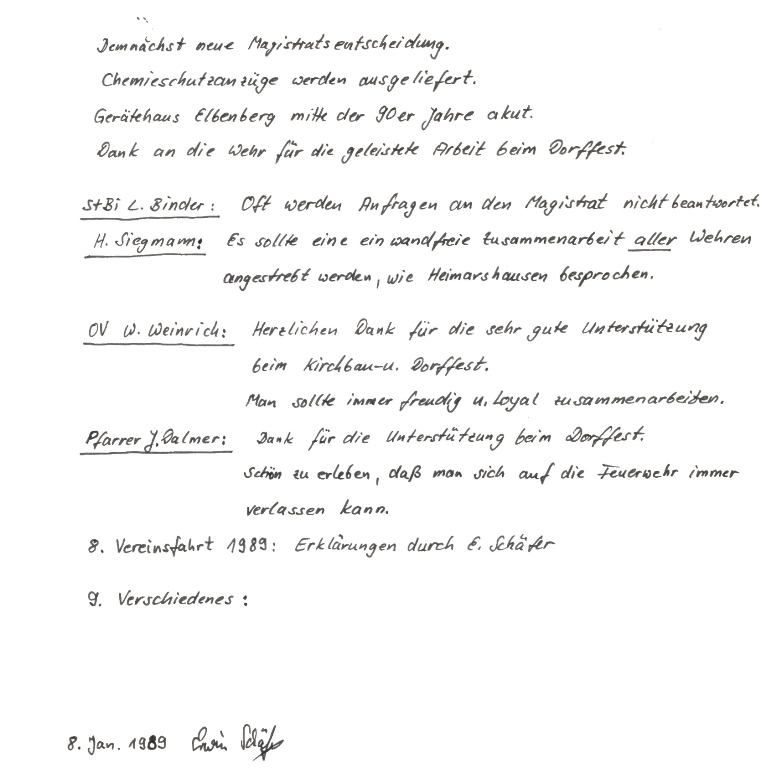 Demnächst neue Magistratsentscheidung.
Chemieschutzanzüge werden ausgeliefert.
Gerätehaus Elbenberg mitte der 90er Jahre akut.
Dank an die Wehr für die geleistete Arbeit beim Dorffest.
StBi L. Binder: Oft werden Anfragen an den Magistrat nicht beantwortet.
H. Siegmann: Es sollte eine einwandfreie Zusammenarbeit aller Wehren
angestrebt werden, wie Heimarshausen besprochen.
OV W. Weinrich: Herzlichen Dank für die sehr gute Unterstützung
beim Kirchbau-u. Dorffest.
Man sollte immer freudig u. Loyal zusammenarbeiten.
Pfarrer J. Dalmer: Dank für die Unterstützung beim Dorffest.
Schön zu erleben, daß man sich auf die Feuerwehr immer
verlassen kann.
8. Vereinsfahrt 1989: Erklärungen durch E. Schäfer
9. Verschiedenes:
8. Jan. 1989 Erwin Schäfer